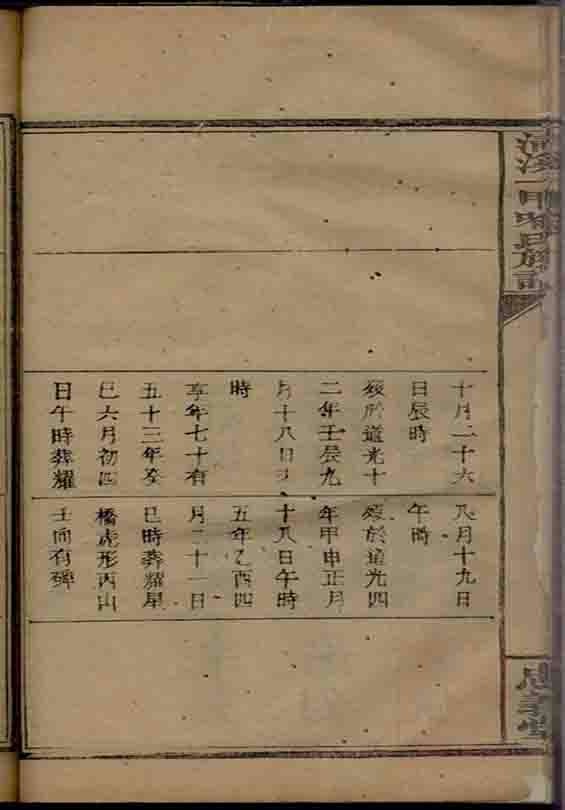 氏族
十月二十六
日辰時
歿於道光十
二年壬辰九
月十八日
時
享年七十有
五十三年癸
巳六月初四
日午時葬耀
八月十九日
午時
歿於道光四
年甲申正月
十八日午時
五年乙酉四
月二十一日
巳時葬耀星
橋虎形丙山
壬向有碑
堂